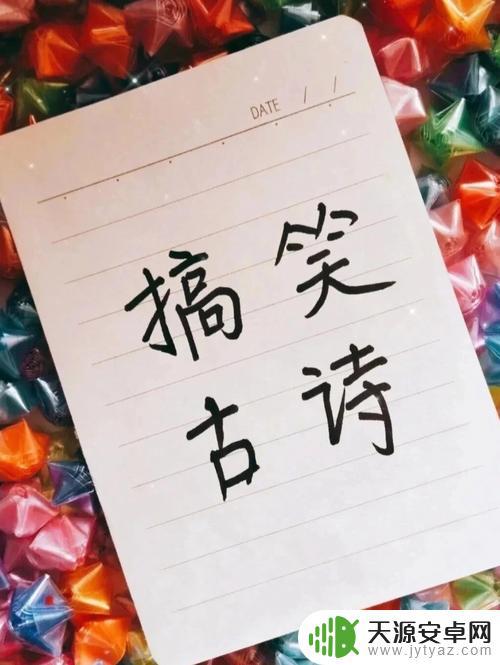 DATE / /
搞笑
古诗
天源安卓网
www.jytyaz.com